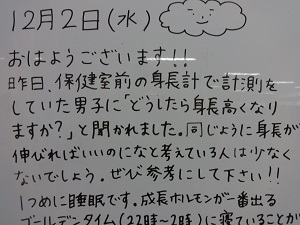 12月2日(水)
おはようございます!!
昨日、保健室前の身長計で計測を
していた男子に「どうしたら身長高くなり
ますか?」と聞かれました。同じように身長が
伸びればいいのになと考えている人は少なく
ないでしょう。ぜひ参考にして下さい!!
1つめに睡眠です。成長ホルモンが一番出る
ゴールデンタイム(22時~2時)に寝ていることが